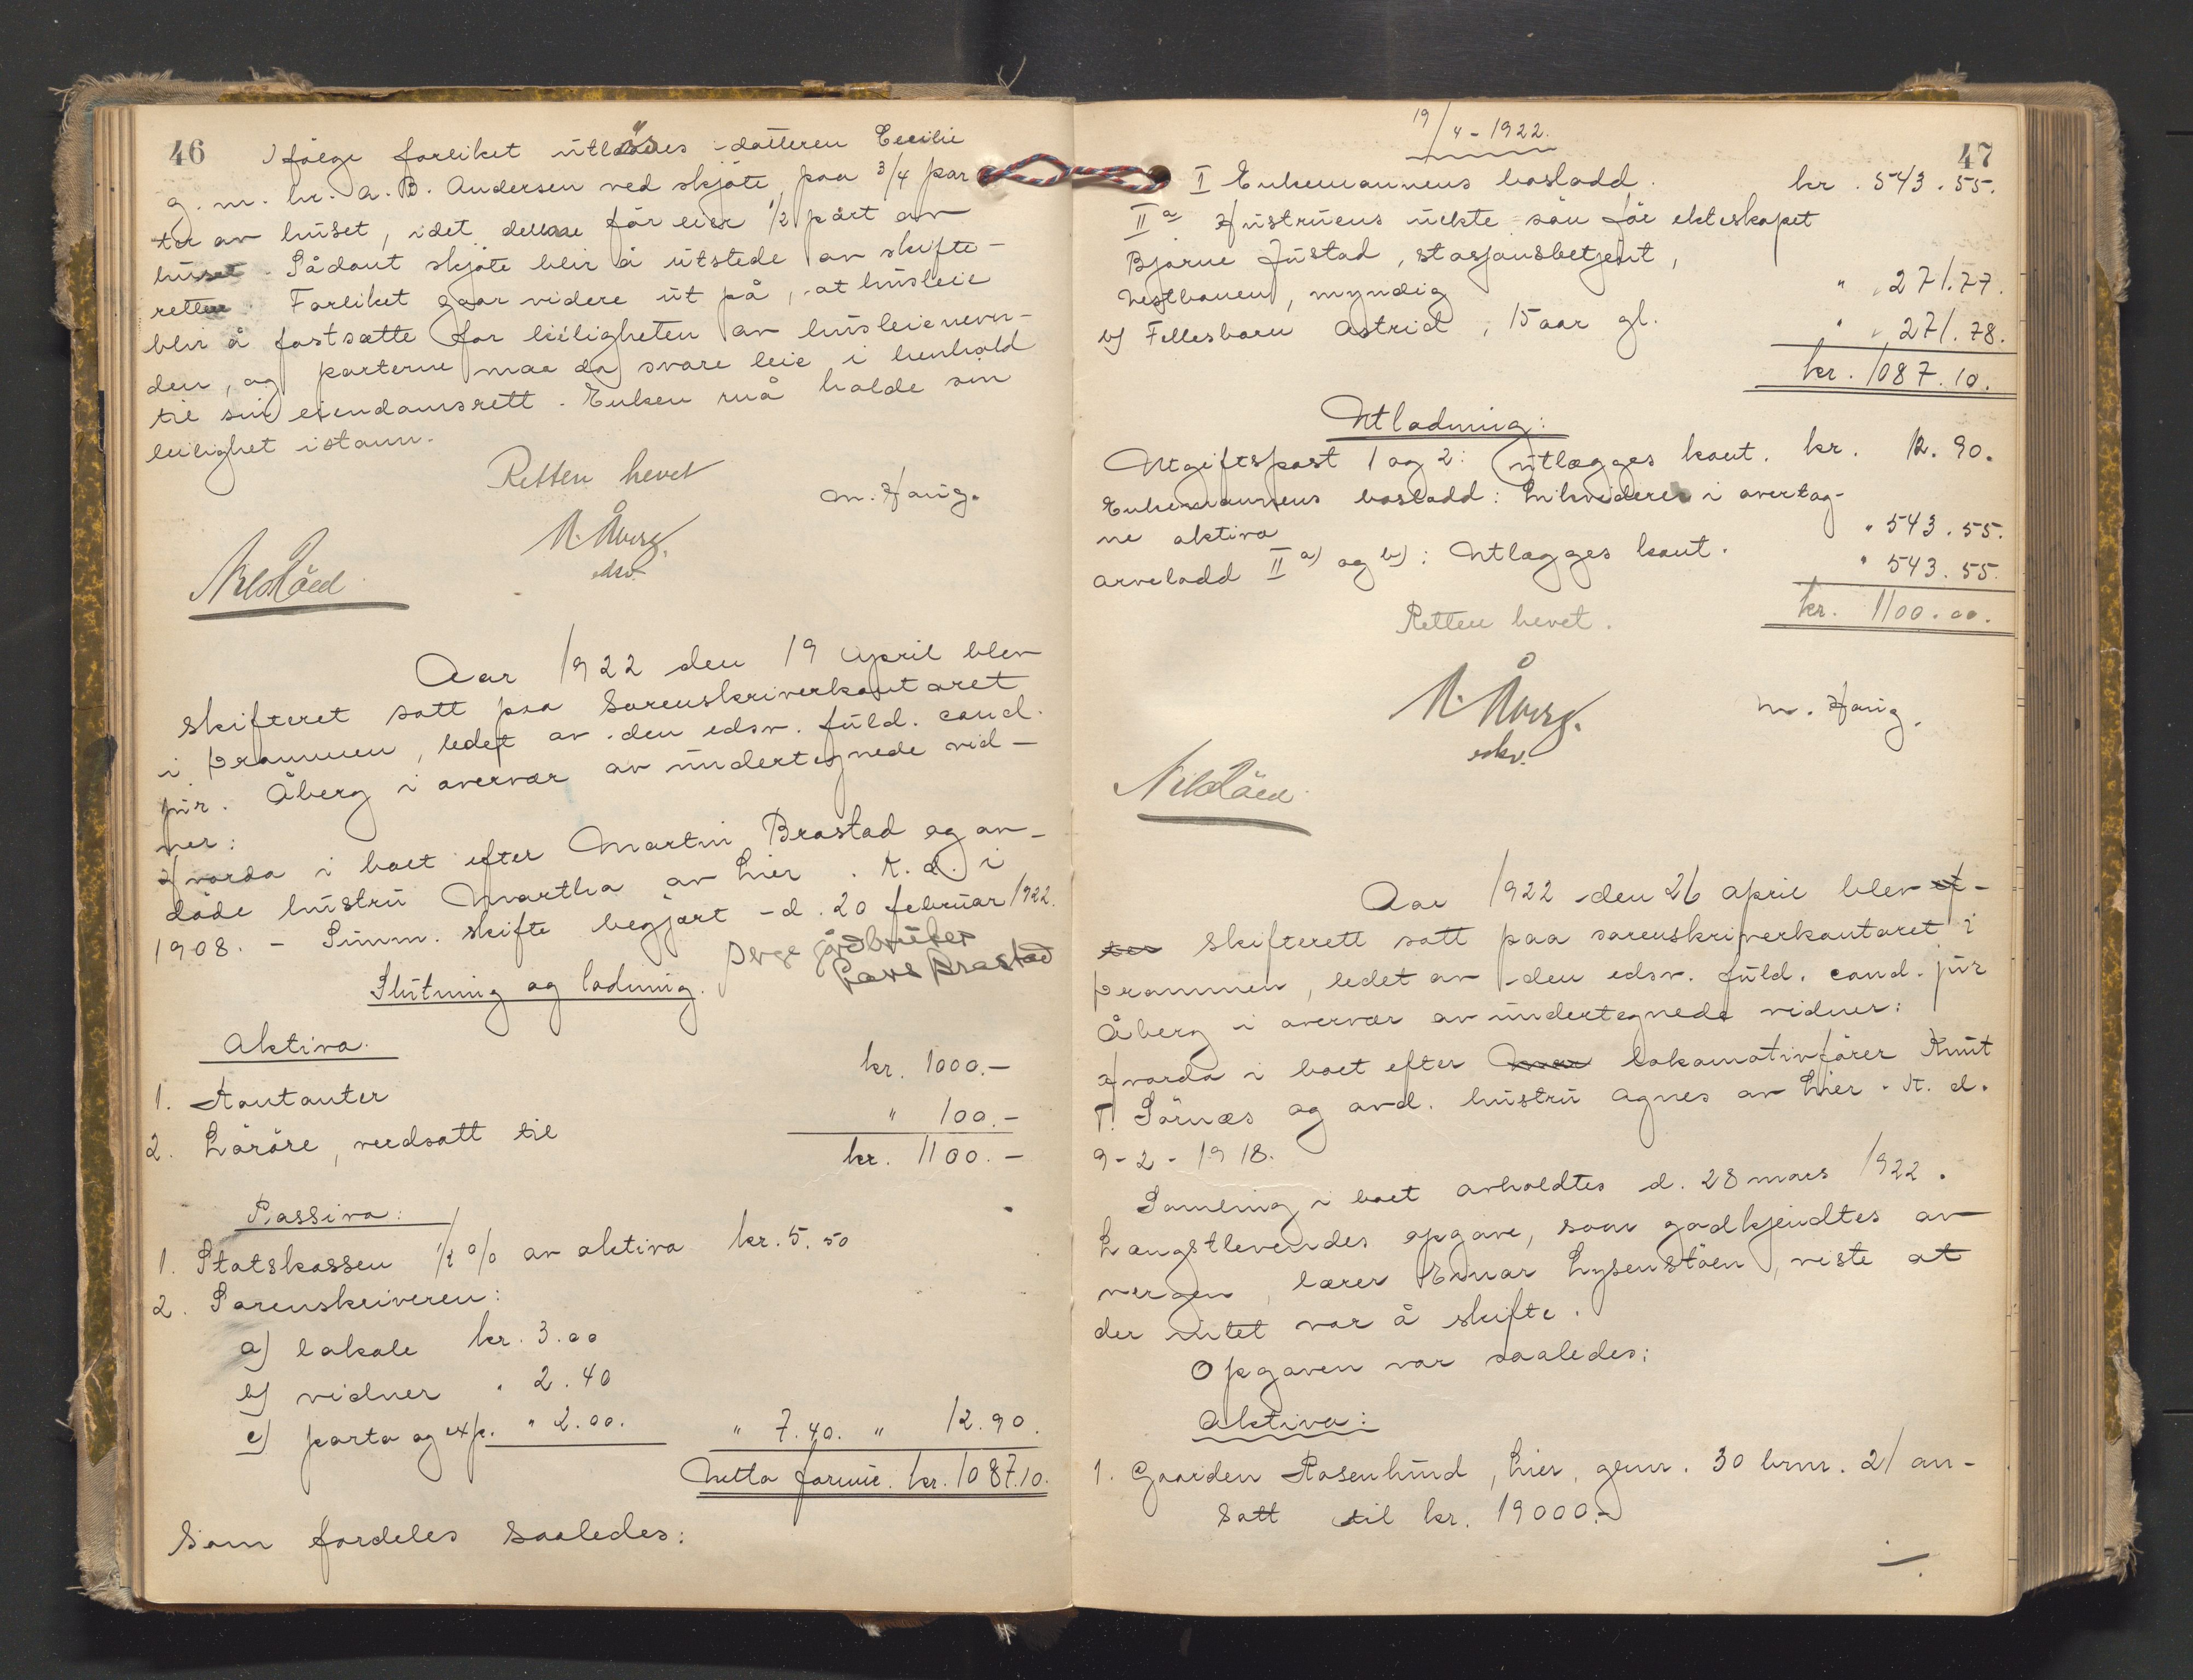 46
Ifölge forliket utlöses datteren Cecilie
g. m. hr. A. B. Andersen ved skjöte paa 3/4 par
ter av huset, idet denne för eier 1/2 part av
huset. Sådant skjöte blir å utstede av skifte-
retten. Forliket gaar videre ut på, at husleie
blir å fastsætte for leiligheten av husleienevn-
den, og parterne maa da svare leie i henhold
til sin eiendomsrett. Enken må holde sin
leilighet istann.
Retten hevet
M. Haug.
N. Åberg.
edsv.
Aar 1922 den 19 april blev
skifteret satt paa Sorenskriverkontoret
i Drammen, ledet av den edsv. fuld. cand.
jur. Åberg i overvær av undertegnede vid-
ner:
Hvorda i boet efter Martin Brastad og av-
döde hustru Martha av Lier. A. d. i
1908. - Summ. skifte begjært d. 20 februar 1922.
Verge gårdbruker
Lars Brastad
Slutning og lodning.
Aktiva.
1. Kontanter kr. 1000.-
2. Lösöre, verdsatt til " 100.-
kr. 1100.-
Passiva:
1. Statskassen 1/2 % av aktiva kr. 5.50
2. Sorenskriveren:
a) lokale kr. 3.00
b) vidner " 2.40
c) porto og exp. " 2.00. " 7.40. " 12.90.
Netto formue. kr. 1087.10.
Som fordeles saaledes:
19/4-1922.
47
I Enkemannens boslodd. kr. 543.55.
II a Hustruens uekte sön för ekteskapet
Bjarne Justad, stasjonsbetjent,
Vestbanen, myndig " 271.77.
b) Fellesbarn Astrid, 15 aar gl. " 271.78.
kr. 1087.10.
Utlodning:
Utgiftspost 1 og 2: utlægges kont. kr. 12.90.
Enkemannens boslodd: Likvideres i overtag-
ne aktiva " 543.55.
Arvelodd II a) og b): Utlægges kont. " 543.55.
kr. 1100.00.
Retten hevet.
N. Åberg.
edsv.
M. Haug.
Aar 1922 den 26 april blev ef-
ter skifterett satt paa sorenskriverkontoret i
Drammen, ledet av den edsv. fuld. cand. jur
Åberg i overvær av undertegnede vidner:
Hvorda i boet efter lokomotivförer Knut
T. Sörnæs og avd. hustru Agnes av Lier. A. d.
9-2-1918.
Samling i boet avholdtes d. 28 mars 1922.
Længstlevendes opgave, som godkjendtes av
vergen, lærer Einar Lysenstöen, viste at
der intet var å skifte.
Opgaven var saaledes:
Aktiva:
1. Gaarden Rosenlund, Lier, gnr. 30 brnr. 21 an-
satt til kr. 19000.-